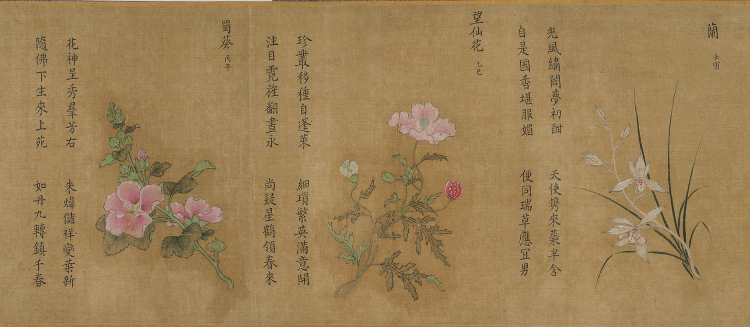 蘭 壬寅
光風繡闥夢初酣 天使携來蘂半含
自是國香堪服媚 便同瑞草應宜男
望仙花 乙巳
珍叢移種自蓬萊 細瑣繁英滿意開
注目霓旌翻晝永 尚疑星鶴領春來
蜀葵 丙午
花神呈秀羣芳右 朱煒儲祥變葉新
隨佛下生來上苑 如丹九轉鎮千春